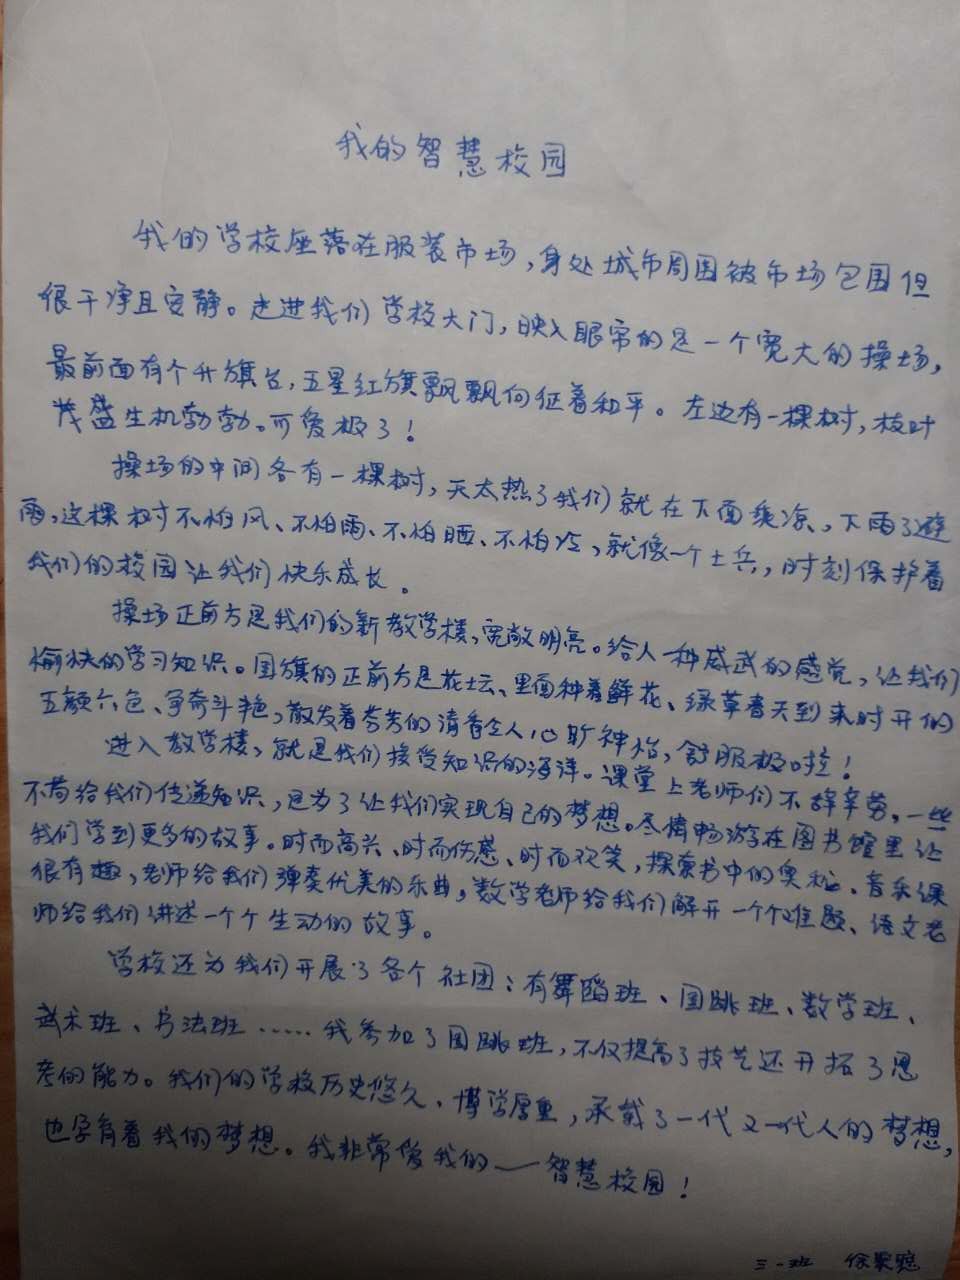 我的智慧校园
我的学校座落在服装市场，身处城市周围被市场包围但
很干净且安静。走进我们学校大门，映入眼帘的是一个宽大的操场，
最前面有个升旗台，五星红旗飘飘向征着和平。左边有一棵树，枝叶
茂盛生机勃勃。可爱极了！
操场的中间各有一棵树，天太热了我们就在下面乘凉、下雨了避
雨，这棵树不怕风、不怕雨、不怕晒、不怕冷，就像一个士兵，时刻保护着
我们的校园让我们快乐成长。
操场正前方是我们的新教学楼，宽敞明亮。给人一种威武的感觉，让我们
愉快的学习知识。国旗的正前方是花坛、里面种着鲜花、绿草春天到来时开的
五颜六色、争奇斗艳，散发着芬芳的清香令人心旷神怡，舒服极啦！
进入教学楼，就是我们接受知识的海洋。课堂上老师们不辞辛劳，一丝
不苟给我们传递知识，是为了让我们实现自己的梦想。尽情畅游在图书馆里让
我们学到更多的故事。时而高兴、时而伤感、时而欢笑，探索书中的奥秘、音乐课
很有趣，老师给我们弹奏优美的乐曲，数学老师给我们解开一个个难题、语文老
师给我们讲述一个个生动的故事。
学校还为我们开展了各个社团：有舞蹈班、国跳班、数学班、
武术班、书法班……我参加了国跳班，不仅提高了技艺还开拓了思
考的能力。我们的学校历史悠久、博学厚重，承载了一代又一代人的梦想，
也孕育着我的梦想。我非常爱我的——智慧校园！
三·一班 徐